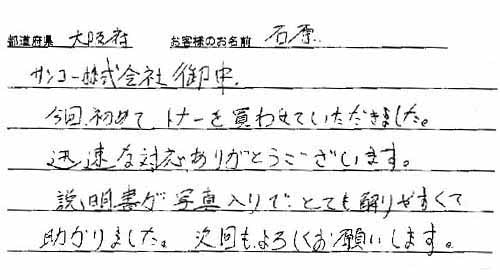 都道府県 大阪府 お客様のお名前 石原
サンコー株式会社御中.
今回、初めて、トナーを買わせていただきました。
迅速な対応ありがとうございます。
説明書が写真入りで、とても解りやすくて
助かりました。次回もよろしくお願いします。